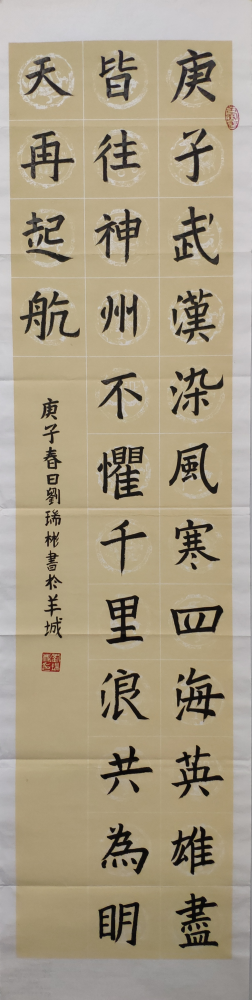 庚子武漢染風寒四海英雄盡
皆往神州不懼千里浪共為明
天再起航
庚子春日劉瑞彬書於羊城